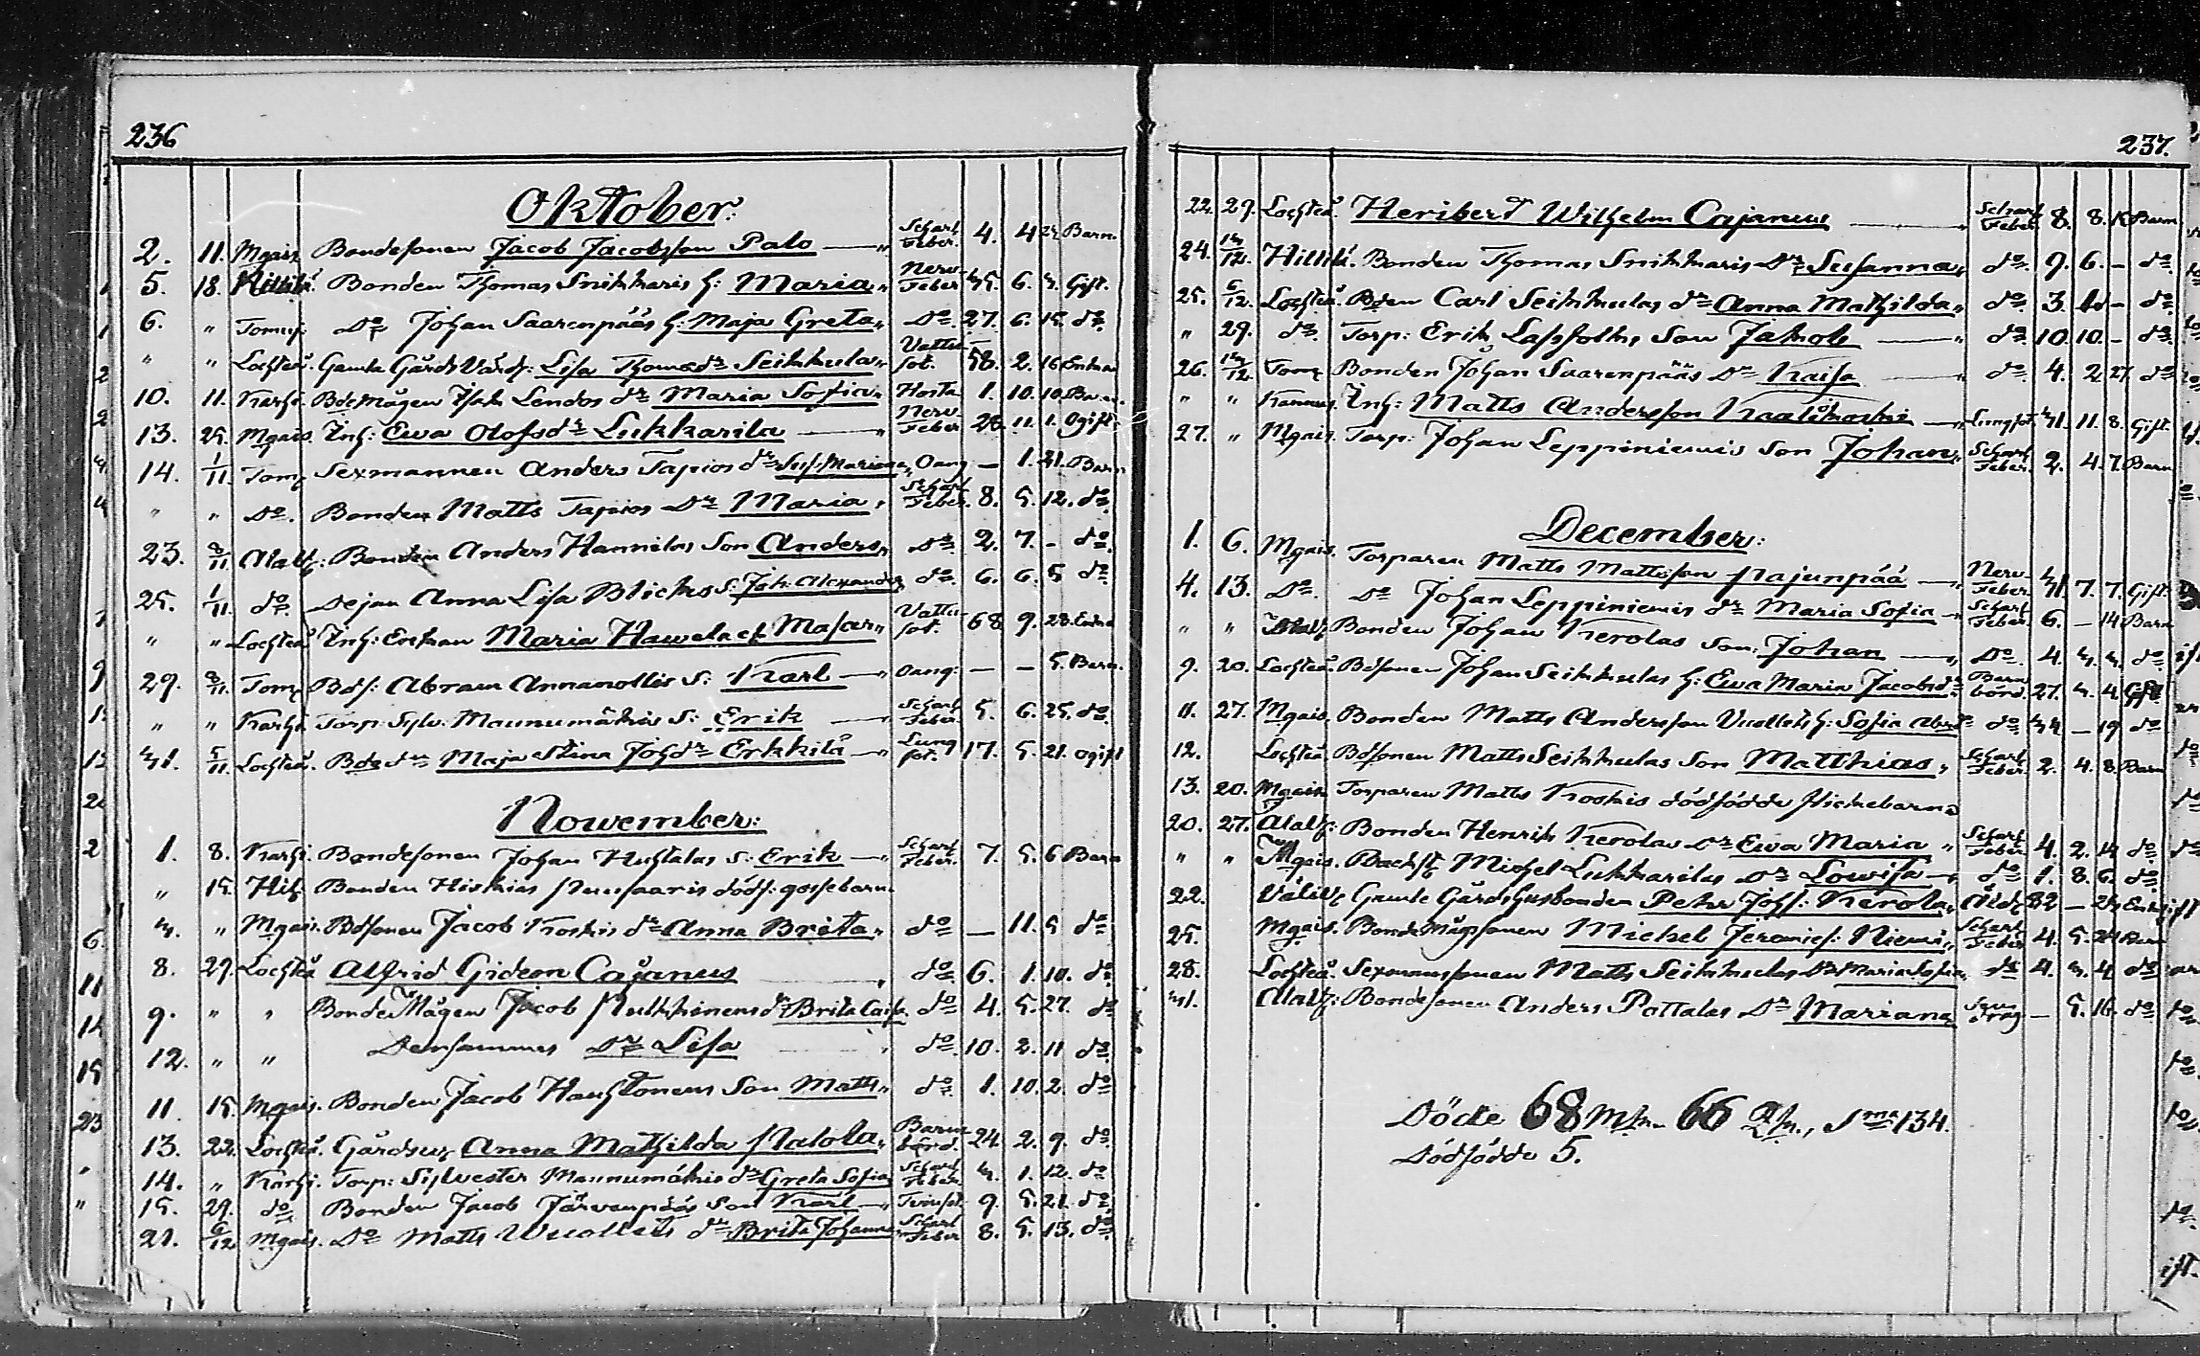 236
Oktober:
2. 11. Mgais Bondesonen Jacob Jacobsson Palo — " Scharl. Feber. 4. 4 Barn.
5. 18. Hillilä. Bonden Thomas Snikkaris h: Maria " Nerv- Feber 35. 6. 3. Gift.
6. " Tomuj. Do Johan Saarenpääs h: Maja Greta " Do. 27. 6. 15. do.
" " Lochteå. Gamla Gårds Värd: Lisa Thomædr Seikkula " Vattu- sot. 58. 2. 16 Enka
10. 11. Karhi. BdeMågen Isak Lendos dr Maria Sofia " Hosta 1. 10. 10. Barn
13. 25. Mgais. Inh: Ewa Olofsdr Lukkarila — " Nerv- Feber 28. 11. 1. Ogift.
14. 1/11. Tomj Sexmannen Anders Tapios dr Sus: Mariana " Oang — 1. 21. Barn
" " Do. Bonden Matts Tapios Dr Maria " Scharl. Feber. 8. 5. 12. do.
23. 8/11. Alatz: Bonden Anders Hannilas Son Anders " Do. 2. 7. - do.
25. 1/11. do. Dejan Anna Lisa Blickes S: Joh: Alexander do. 6. 6. 5 do.
" " Lochteå Inh: Enkan Maria Hawela el. Masar " Vattu- sot. 68. 9. 28. Enka
29. 8/11. Tomj Bds: Abram Annanollis S: Karl — " Oang: — — 5. Barn.
" " Karhi. Torp: Sylv: Maunumäkis S: Erik — " Scharl. Feber. 5. 6. 25. do.
31. 5/11. Lochteå. Bde dr Maja Stina Johdr Erkkilä — " Lung sot. 17. 5. 21. ogift
Nowember:
1. 8. Karhi. Bondesonen Johan Huhtalas S: Erik — " Scharl. Feber. 7. 5. 6 Barn
" 15. Hih. Bonden Hiskias Puusaaris dödf: gossebarn.
3. " Mgais. Bdsonen Jacob Koskis dr Anna Brita " do — 11. 5 do
8. 29. Lochteå Alfrid Gideon Cajanus " do. 6. 1. 10. do.
9. " " BondeMågen Jacob Pulkkinens dr Brita Caisa do 4. 5. 27. do
12. " " Densammes Dr Lisa " do. 10. 2. 11 do.
11. 15. Mgais. Bonden Jacob Hauhtonens Son Matts " do. 1. 10. 2. do
13. 22. Lochteå. Gårdsex Anna Mathilda Palola " Barn börd. 24. 2. 9. do.
14. " Karhi. Torp: Sylvester Maunumäkis dr Greta Sofia Scharl. Feber. 3. 1. 12. do
15. 29. do. Bonden Jacob Järvenpääs Son Karl — " Tvinsot. 9. 5. 21. do.
21. 6/12 Mgais. Do Matts Wuollets dr Brita Johanna Scharl. Feber 8. 5. 13. do.
237.
22. 29. Lochteå. Heribert Wilhelm Cajanus — " Scharl. Feber. 8. 8. Barn
24. 13/12. Hillilä. Bonden Thomas Snikkaris Dr Susanna " do. 9. 6. — do.
25. 6/12. Lochteå. Bden Carl Seikkulas dr Anna Mathilda " do. 3. — do.
" 29. do. Torp: Erik Lassfolks Son Jakob — " do. 10. 10. - do.
26. 13/12. Tomj Bonden Johan Saarenpääs Dr Kaisa — " do. 4. 2. 27. do.
" " Kannus. Inh: Matts Andersson Kaalikoski — " Lungsot. 31. 11. 8. Gift.
27. " Mgais. Torp: Johan Leppiniemis Son Johan " Scharl. Feber. 2. 4. 7. Barn
December:
1. 6. Mgais. Torparen Matts Mattsson Pajunpää — " Nerv- Feber. 31. 7. 7. Gift
4. 13. Do. Do Johan Leppiniemis dr Maria Sofia — " Scharl. Feber. 6. — 14. Barn
" " Alatz Bonden Johan Kerolas Son Johan — " Do. 4. 3. 3. do
9. 20. Lochteå. Bdsonen Johan Seikkulas h: Ewa Maria Jacobsdr Barn börd. 27. 3. 4. Gift.
11. 27. Mgais. Bonden Matts Andersson Vuollets h: Sofia Abrdr do 33 — 19 do
12. Lochteå Bdsonen Matts Seikkulas Son Matthias " Scharl. Feber. 2. 4. 8. Barn
13. 20. Mgais Torparen Matts Koskis dödfödde flickebarn
20. 27. Alatz: Bonden Henrik Kerolas Dr Ewa Maria " Scharl. Feber. 4. 2. 14 do.
" " Mgais. Backst. Michel Lukkarilas Dr Lowisa — " do. 1. 8. 6. do.
22. Välivz Gamle Gårds husbonden Petr Johs: Kerola " Åldz 82 — 24 Enk
25. Mgais. BondeMågsonen Michel Jeremies: Niemi " Scharl. Feber. 4. 5. 24 Barn
28. Lochteå. Sexmanssonen Matts Seikkulas Dr Maria Sofia " do 4. 3. 4 do
31. Alatz: Bondesonen Anders Pottalas Dr Mariana — 5. 16. do
Döde 68 Mk. 66 Qk., Sma 134.
Dödfödde 5.